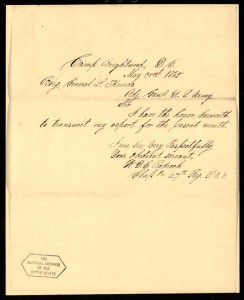 Camp Brightwood, D.C.
May 31st 1865
Brig. General L. Thomas
Adj. Genl. U. S. Army
Sir
I have the honor herewith
to transmit my report for the present month.
I am Sir, very Respectfully,
Your obedient servant,
Chap
THE
NATIONAL ARCHIVES
OF THE
UNITED STATES